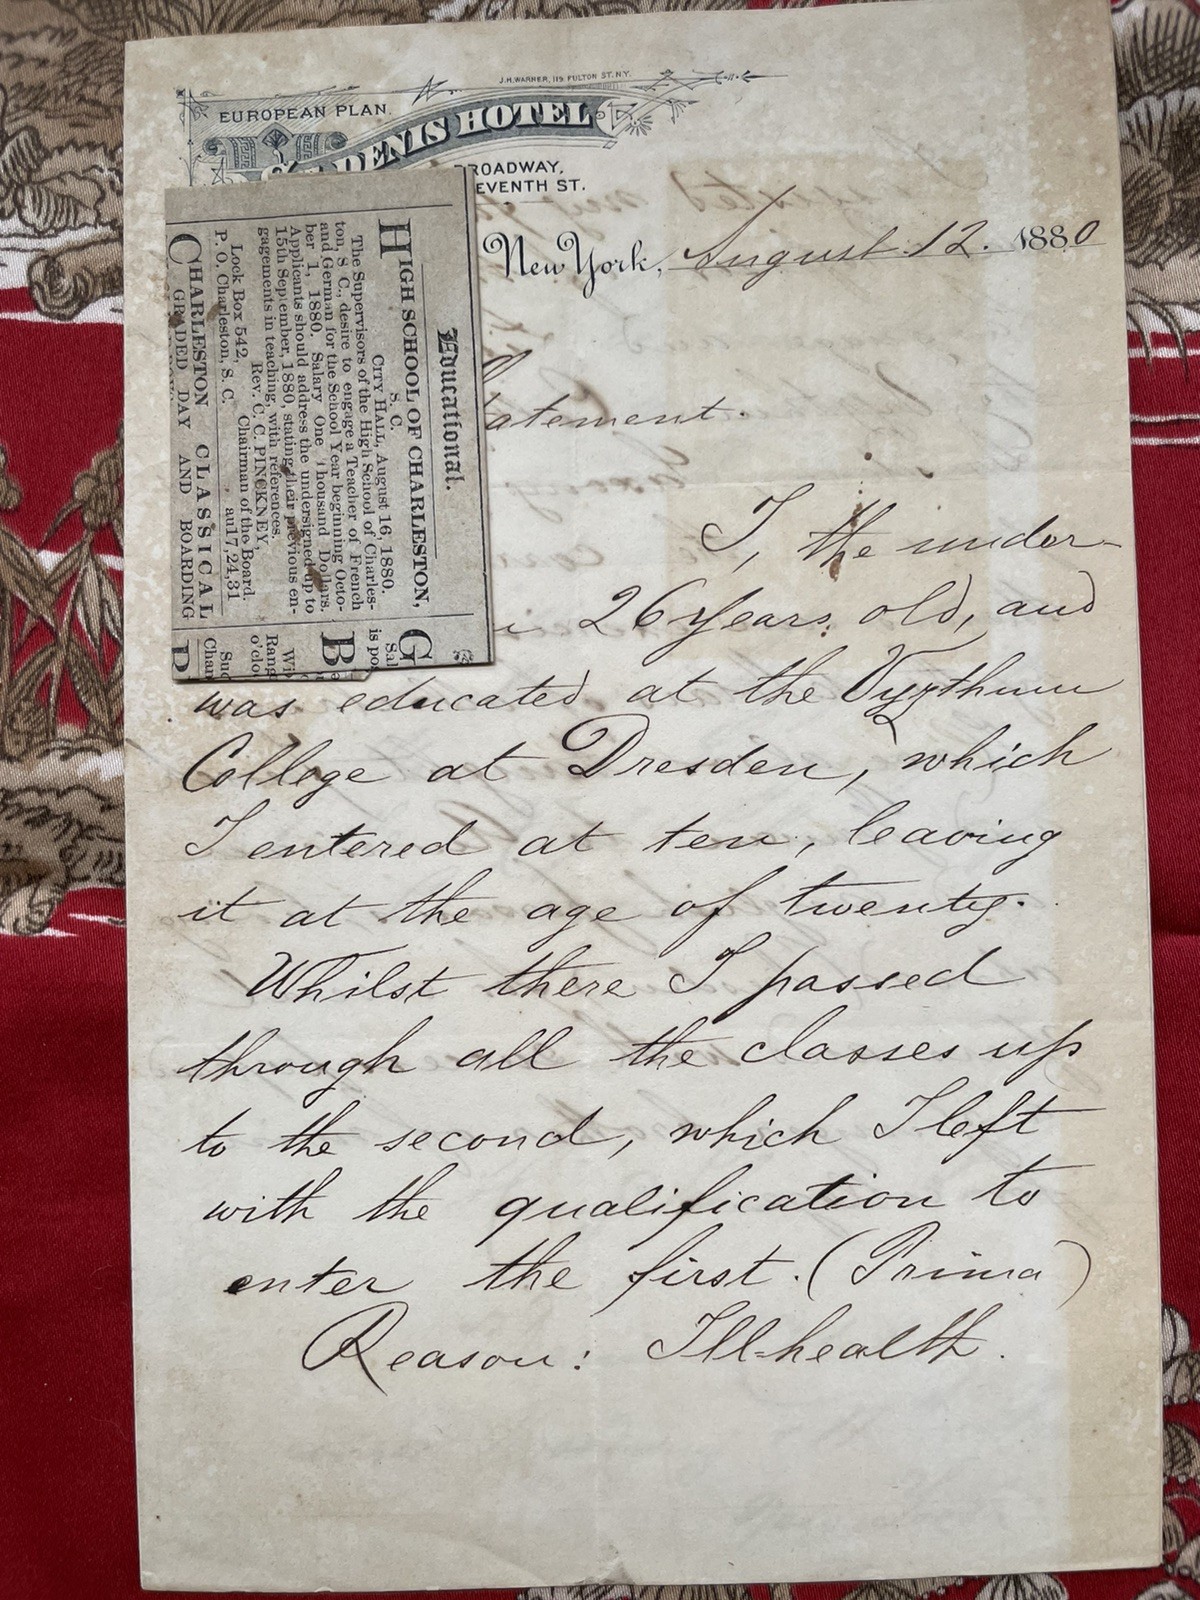 J.H. WARNER, 119 FULTON ST. N.Y.
EUROPEAN PLAN.
DENIS HOTEL
ROADWAY,
EVENTH ST.
New York, August 12. 1880
atement.
I, the under-
26 years old, and
was educated at the Vyzthum
College at Dresden, which
I entered at ten, leaving
it at the age of twenty.
Whilst there I passed
through all the classes up
to the second, which I left
with the qualification to
enter the first. (Prima)
Reason: Ill-health.
Educational.
HIGH SCHOOL OF CHARLESTON,
S. C.
CITY HALL, August 16, 1880.
The Supervisors of the High School of Charles-
ton, S. C., desire to engage a Teacher of French
and German for the School Year beginning Octo-
ber 1, 1880. Salary One Thousand Dollars.
Applicants should address the undersigned up to
15th September, 1880, stating their previous en-
gagements in teaching, with references.
Rev. C. C. PINCKNEY,
Chairman of the Board.
Lock Box 542,
P. O. Charleston, S. C. au17,24,31
CHARLESTON CLASSICAL
GRADED DAY AND BOARDING
G
Sal
is pos
B
Wi
Rang
o'clo
Suc
Char